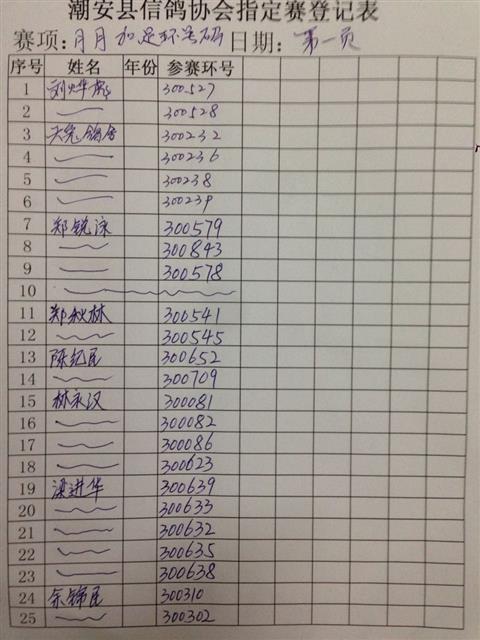 潮安县信鸽协会指定赛登记表
赛项:月月加足环号码 日期:第一页
序号 姓名 年份 参赛环号
1 刘烨彪 300527
2 300528
3 天宪鸽舍 300232
4 300236
5 300238
6 300239
7 郑锐泳 300579
8 300843
9 300578
10
11 郑秋林 300541
12 300545
13 陈纪民 300652
14 300709
15 林永汉 300081
16 300082
17 300086
18 300623
19 梁进华 300639
20 300633
21 300632
22 300635
23 300638
24 余锦民 300310
25 300302